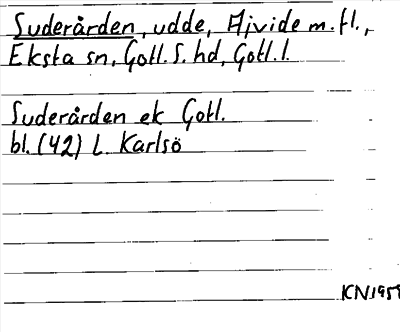 Suderården, udde, Ajvide m.fl.,
Eksta sn, Gotl. S. hd, Gotl. l.
Suderården ek Gotl.
bl. (42) L. Karlsö
KN 1959